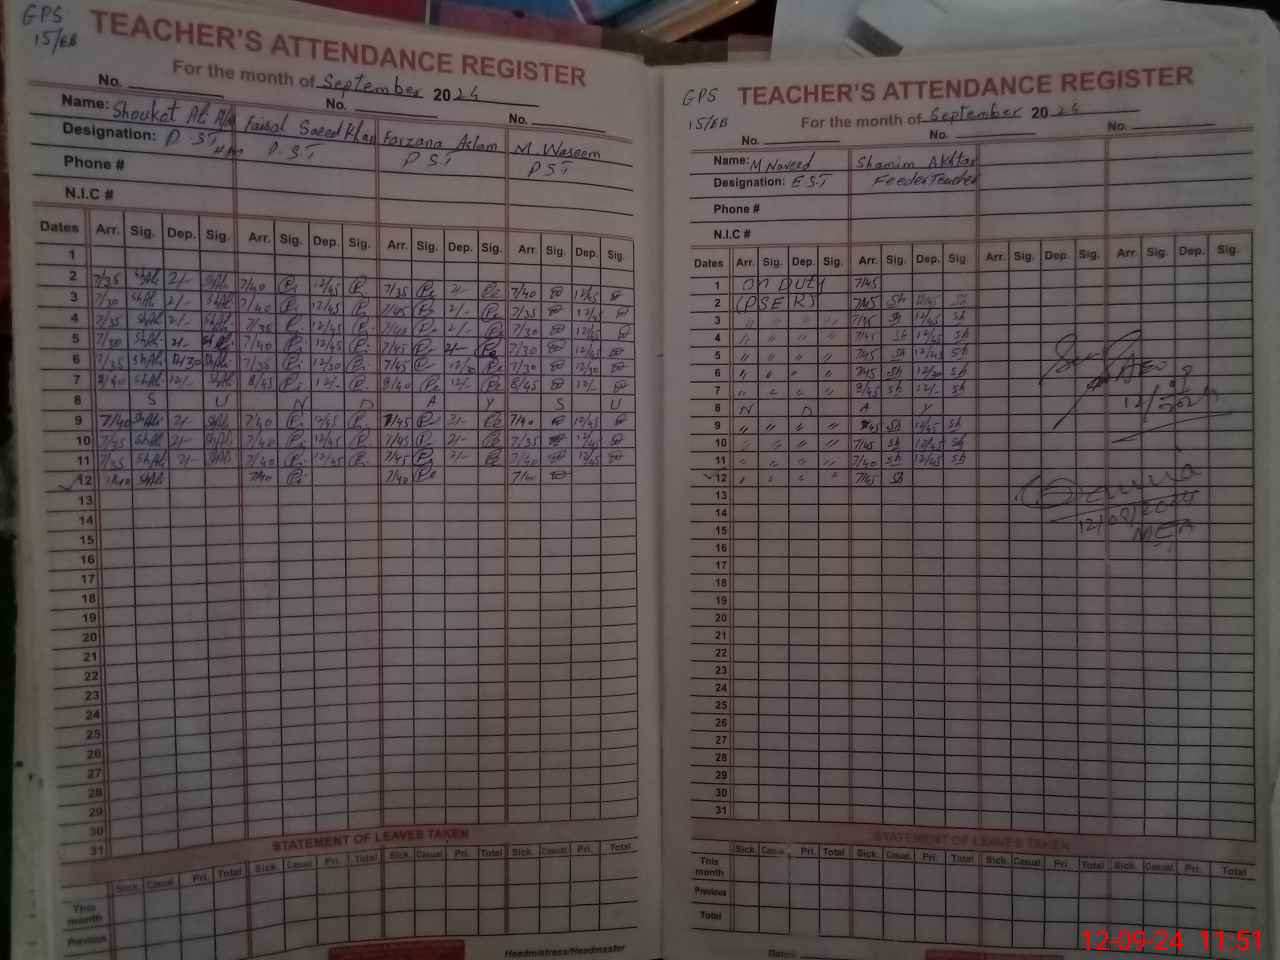 GPS
15/EB
TEACHER'S ATTENDANCE REGISTER
For the month of September 2024
No. No. No.
Name: Shoukat Ali Faisal Saeed Khan Farzana Aslam M Waseem
Designation: P.ST P.ST PST PST
Phone #
N.I.C #
Dates Arr. Sig. Dep. Sig. Arr. Sig. Dep. Sig. Arr. Sig. Dep. Sig. Arr. Sig. Dep. Sig.
1
2 7/35 2/- 7/40 12/45 7/35 2/- 7/40 12/45
3 7/30 2/- 7/40 12/45 7/45 2/- 7/35 12/45
4 7/35 2/- 7/35 12/45 7/40 2/- 7/30 12/45
5 7/30 2/- 7/40 12/45 7/45 2/- 7/30 12/45
6 7/35 12/30 7/35 12/30 7/45 12/30 7/30 12/30
7 8/40 12/- 8/45 12/- 8/40 12/- 8/45 12/-
8 S U N D A Y S U
9 7/40 2/- 7/40 12/45 7/45 2/- 7/40 12/45
10 7/35 2/- 7/40 12/45 7/45 2/- 7/35 12/45
11 7/35 2/- 7/40 12/45 7/45 2/- 7/40 12/45
12 7/40 7/40
13
14
15
16
17
18
19
20
21
22
23
24
25
26
27
28
29
30
31
STATEMENT OF LEAVES TAKEN
Sick. Casual. Pri. Total Sick. Casual. Pri. Total Sick. Casual. Pri. Total Sick. Casual. Pri. Total
This month
Previous
Headmistress/Headmaster
GPS
15/EB
TEACHER'S ATTENDANCE REGISTER
For the month of September 2024
No. No. No.
Name: M Naveed Shamim Akhtar
Designation: E.S.T Feeder Teacher
Phone #
N.I.C #
Dates Arr. Sig. Dep. Sig. Arr. Sig. Dep. Sig. Arr. Sig. Dep. Sig. Arr. Sig. Dep. Sig.
1 on Duty 7/45
2 (PSER) 7/45 Sh 12/45 Sh
3 " " " " 7/35 Sh 12/45 Sh
4 " " " " 7/45 Sh 12/45 Sh
5 " " " " 7/45 Sh 12/45 Sh
6 " " " " 7/45 Sh 12/30 Sh
7 " " " " 8/45 Sh 12/- Sh
8 N D A Y
9 " " " " 7/45 Sh 12/45 Sh
10 " " " " 7/45 Sh 12/45 Sh
11 " " " " 7/40 Sh 12/45 Sh
12 " " " " 7/45 Sh
13
14
15
16
17
18
19
20
21
22
23
24
25
26
27
28
29
30
31
AEO
MEA
STATEMENT OF LEAVES TAKEN
Sick. Casual. Pri. Total Sick. Casual. Pri. Total Sick. Casual. Pri. Total Sick. Casual. Pri. Total
This month
Previous
Total
Dated:
12-09-24 11:51